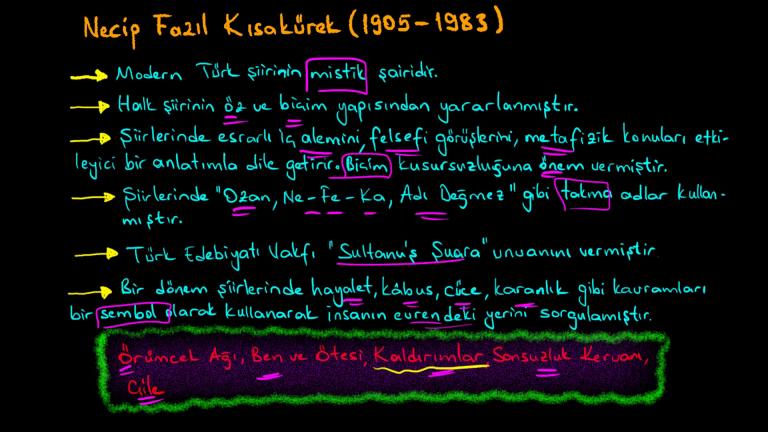 Necip Fazıl Kısakürek (1905-1983)
Modern Türk şiirinin mistik şairidir.
Halk şiirinin öz ve biçim yapısından yararlanmıştır.
Şiirlerinde esrarlı iç alemini, felsefi görüşlerini, metafizik konuları etki-
leyici bir anlatımla dile getirir. Biçim kusursuzluğuna önem vermiştir.
Şiirlerinde "Ozan, Ne-Fe-Ka, Adı Değmez" gibi takma adlar kullan-
mıştır.
Türk Edebiyatı Vakfı "Sultanu'ş Şuara" unvanını vermiştir
Bir dönem şiirlerinde hayalet, kâbus, cüce, karanlık gibi kavramları
bir sembol olarak kullanarak insanın evrendeki yerini sorgulamıştır.
Örümcek Ağı, Ben ve Ötesi, Kaldırımlar, Sonsuzluk Kervanı,
Çile